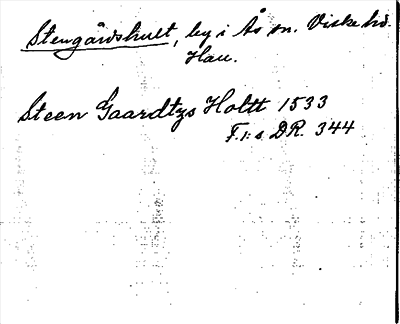 Stengårdshult, by i Ås sn. Viske hd.
Hall.
Steen Gaardtzs Holtt 1533
F.I:s DR. 344